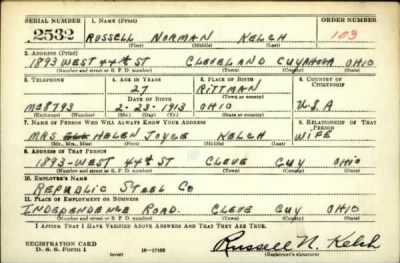 SERIAL NUMBER 1. NAME (Print) ORDER NUMBER
2532 RUSSELL NORMAN KELCH 103
(First) (Middle) (Last)
2. ADDRESS (Print)
1893 WEST 44th ST CLEVELAND CUYAHOGA OHIO
(Number and street or R. F. D. number) (Town) (County) (State)
3. TELEPHONE 4. AGE IN YEARS 5. PLACE OF BIRTH 6. COUNTRY OF CITIZENSHIP
27 RITTMAN
DATE OF BIRTH (Town or county)
ME8793 2-23-1913 OHIO U.S.A
(Exchange) (Number) (Mo.) (Day) (Yr.) (State or country)
7. NAME OF PERSON WHO WILL ALWAYS KNOW YOUR ADDRESS 8. RELATIONSHIP OF THAT PERSON
MRS HELEN JOYCE KELCH WIFE
(Mr., Mrs., Miss) (First) (Middle) (Last)
9. ADDRESS OF THAT PERSON
1893-WEST 44th ST CLEVE CUY OHIO
(Number and street or R. F. D. number) (Town) (County) (State)
10. EMPLOYER'S NAME
REPUBLIC STEEL CO
11. PLACE OF EMPLOYMENT OR BUSINESS
INDEPENDENCE ROAD. CLEVE CUY OHIO
(Number and street or R. F. D. number) (Town) (County) (State)
I AFFIRM THAT I HAVE VERIFIED ABOVE ANSWERS AND THAT THEY ARE TRUE.
REGISTRATION CARD
D. S. S. Form 1 (over) Russell N. Kelch
(Registrant's signature)